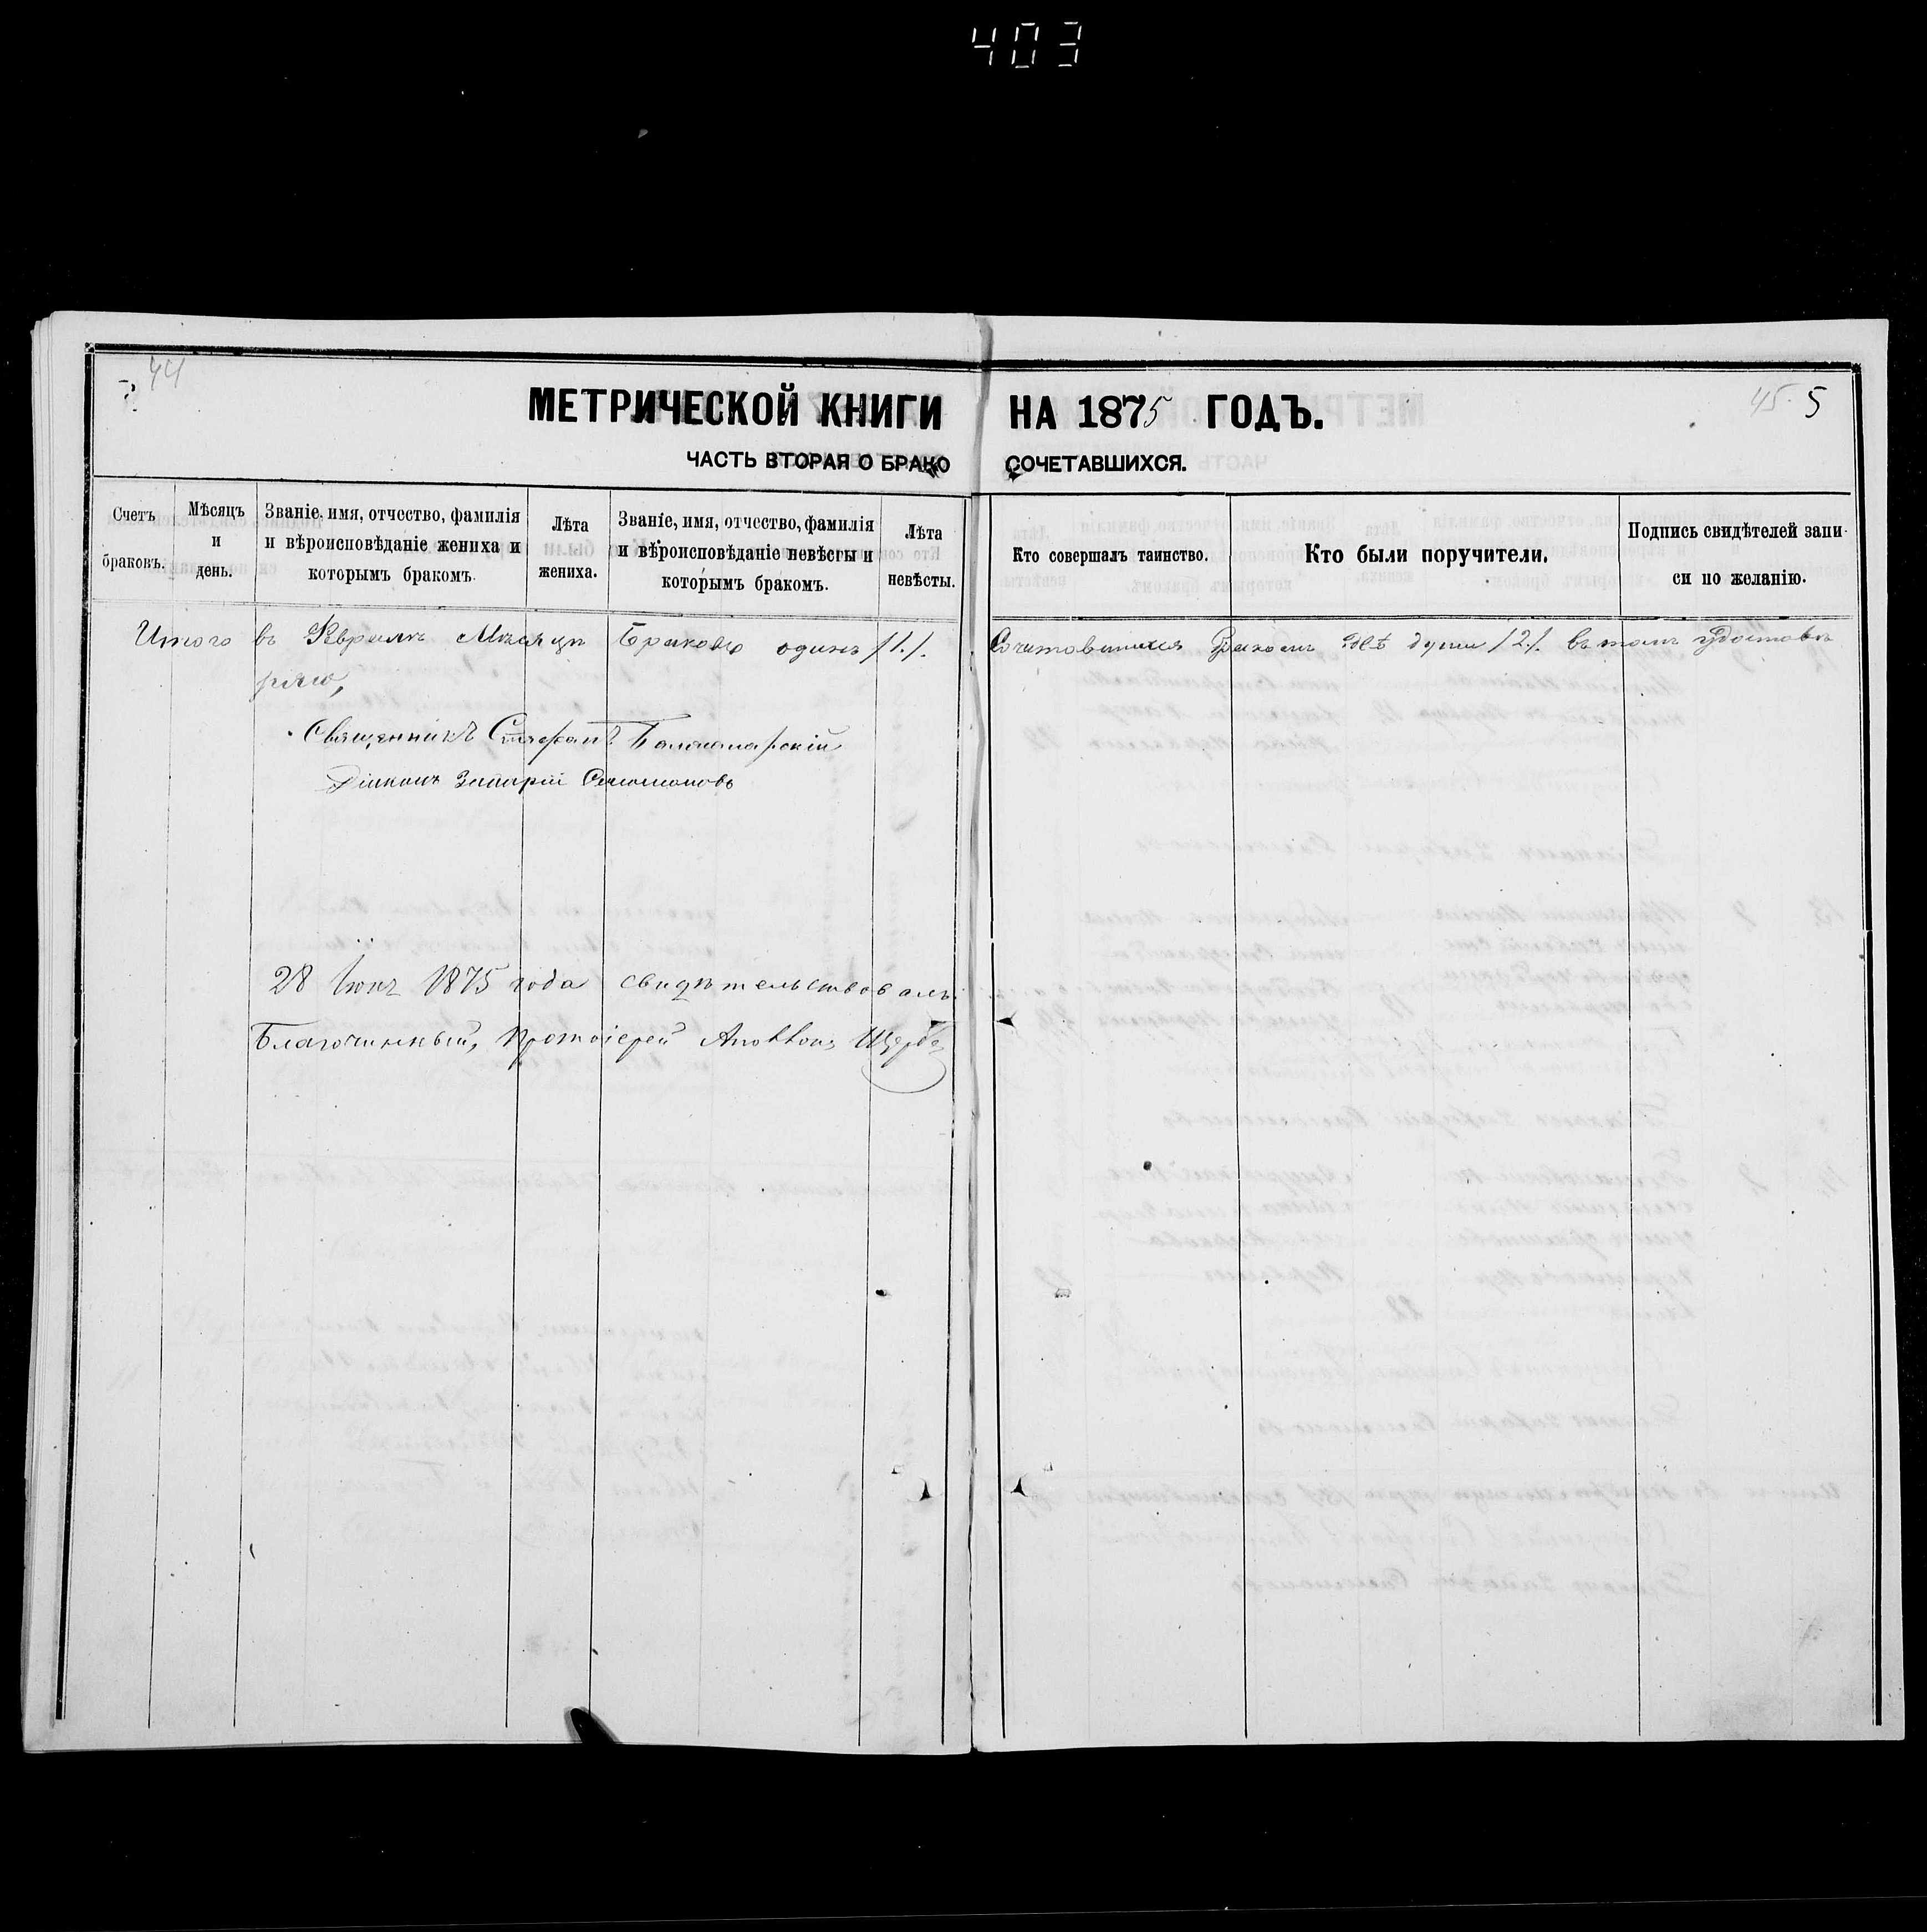 403
44
45. 5
МЕТРИЧЕСКОЙ КНИГИ НА 1875 ГОДЪ.
ЧАСТЬ ВТОРАЯ О БРАКОСОЧЕТАВШИХСЯ.
Счетъ браковъ.
Мѣсяцъ и день.
Званіе, имя, отчество, фамилія и вѣроисповѣданіе жениха и которымъ бракомъ.
Лѣта жениха.
Званіе, имя, отчество, фамилія и вѣроисповѣданіе невѣсты и которымъ бракомъ.
Лѣта невѣсты.
Кто совершалъ таинство.
Кто были поручители.
Подпись свидѣтелей записи по желанію.
Итого въ Февралѣ Мѣсяцѣ Браковъ одинъ /1./. Сочетавшихся Бракомъ двѣ души /2./. въ томъ удостовѣ
ряю,
Священникъ Стефанъ
Діаконъ Захарій Соломоновъ
28 Іюнѣ 1875 года свидѣтельствовалъ
Благочинный, Протоіерей Щерба